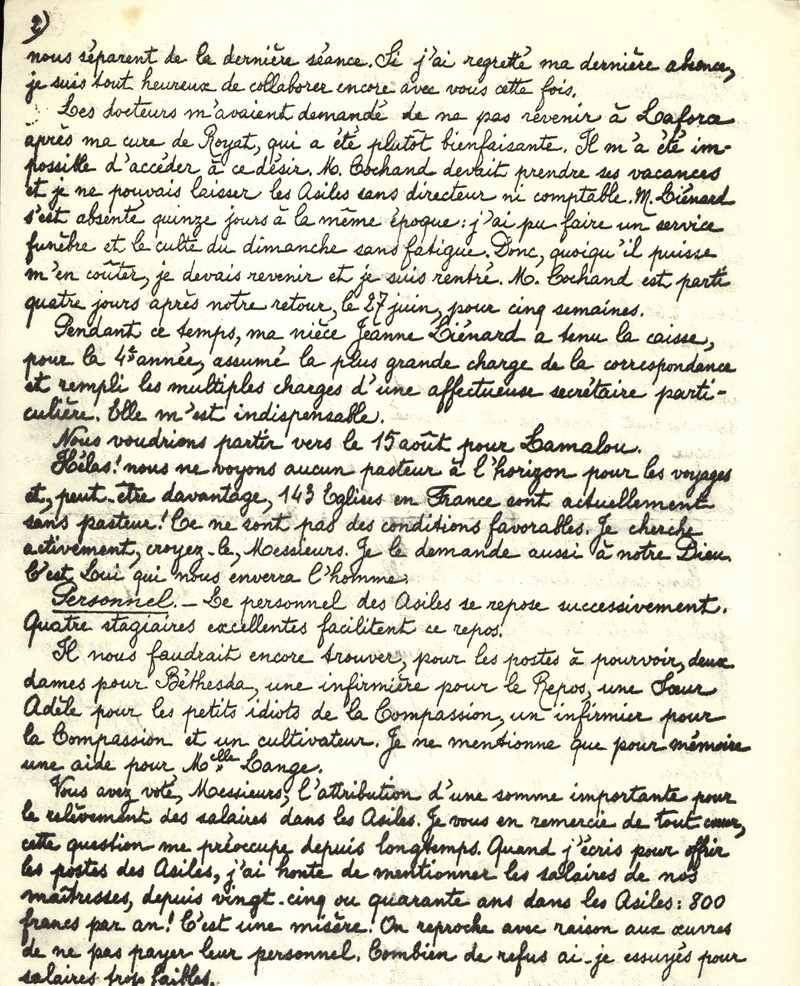 2)
nous séparent de la dernière séance. Si j'ai regretté ma dernière absence,
je suis tout heureux de collaborer encore avec vous cette fois.
Les docteurs m'avaient demandé de ne pas revenir à Laforce
après ma cure de Royat, qui a été plutôt bienfaisante. Il m'a été im-
possible d'accéder à ce désir. M. Cochand devait prendre ses vacances
et je ne pouvais laisser les Asiles sans directeur ni comptable. M. Liénard
s'est absenté quinze jours à la même époque : j'ai pu faire un service
funèbre et le culte du dimanche sans fatigue. Donc, quoiqu'il puisse
m'en coûter, je devais revenir et je suis rentré. M. Cochand est parti
quatre jours après notre retour, le 27 juin, pour cinq semaines.
Pendant ce temps, ma nièce Jeanne Liénard a tenu la caisse,
pour la 4e année, assumé la plus grande charge de la correspondance
et rempli les multiples charges d'une affectueuse secrétaire parti-
culière. Elle m'est indispensable.
Nous voudrions partir vers le 15 août pour Lamalou.
Hélas! nous ne voyons aucun pasteur à l'horizon pour les voyages
et, peut-être davantage, 143 Eglises en France sont actuellement
sans pasteur! Ce ne sont pas des conditions favorables. Je cherche
activement, croyez-le, Messieurs. Je le demande aussi à notre Dieu.
C'est Lui qui nous enverra l'homme.
Personnel. - Le personnel des Asiles se repose successivement.
Quatre stagiaires excellentes facilitent ce repos.
Il nous faudrait encore trouver, pour les postes à pourvoir, deux
dames pour Béthesda, une infirmière pour le Repos, une Sœur
Adèle pour les petits idiots de la Compassion, un infirmier pour
la Compassion et un cultivateur. Je ne mentionne que pour mémoire
une aide pour Melle Lange.
Vous avez voté, Messieurs, l'attribution d'une somme importante pour
le relèvement des salaires dans les Asiles. Je vous en remercie de tout cœur,
cette question me préoccupe depuis longtemps. Quand j'écris pour offrir
les postes des Asiles, j'ai honte de mentionner les salaires de nos
maîtresses, depuis vingt-cinq ou quarante ans dans les Asiles : 800
francs par an! C'est une misère. On reproche avec raison aux œuvres
de ne pas payer leur personnel. Combien de refus ai-je essuyés pour
salaires trop faibles.